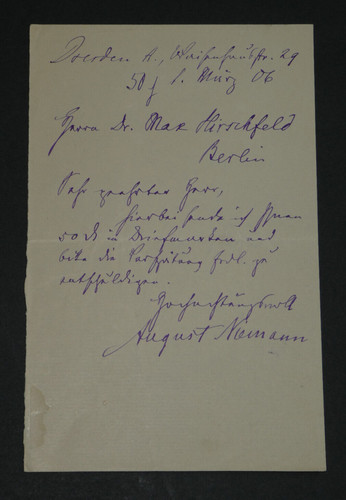 Dresden A., Waisenhausstr. 29
50 1. März 06
Herrn Dr. Max Hirschfeld
Berlin
Sehr geehrter Herr,
hierbei sende ich Ihnen
50 in Briefmarken und
bitte die Verspätung frdl. zu
entschuldigen.
Hochachtungsvoll
August Niemann